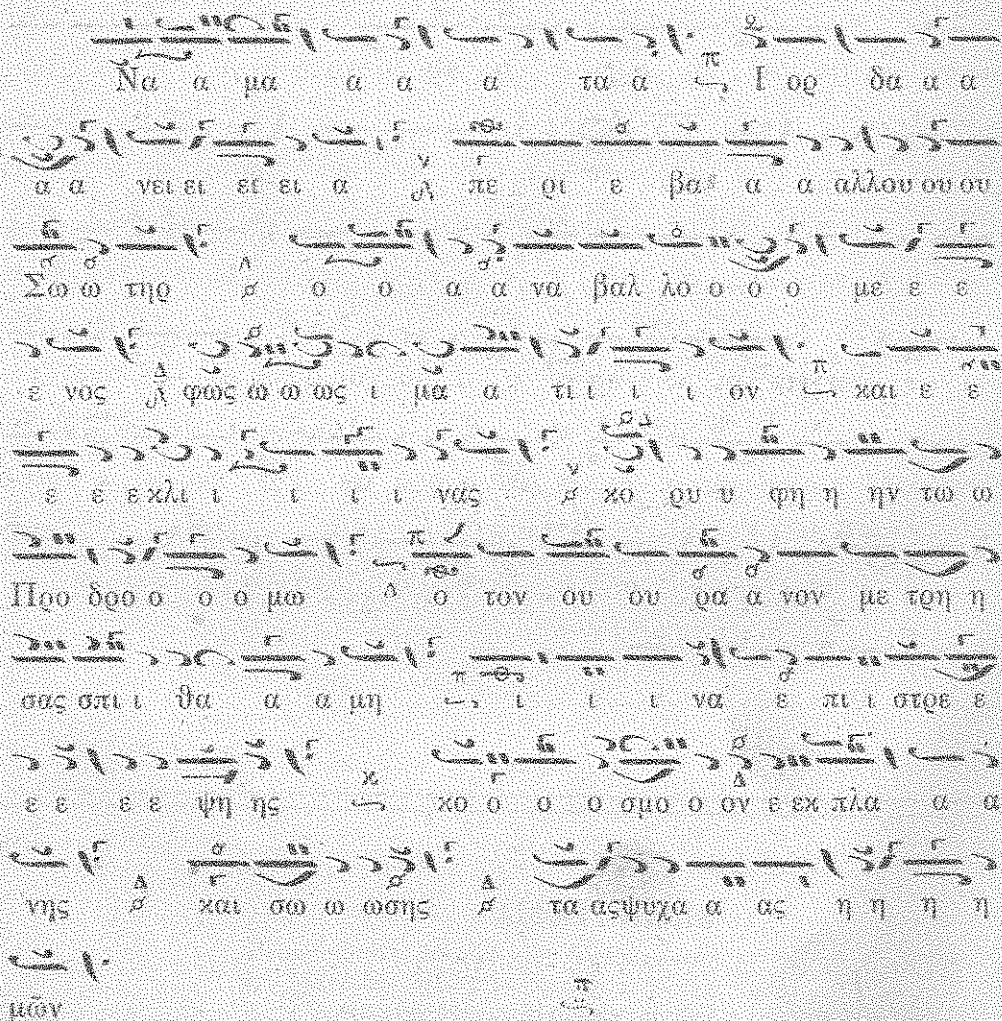 Να α μα α α α τα α π Ι ορ δα α α
α α νει ει ει ει α ν πε ρι ε βα α α αλλου ου ου
Σω ω τηρ ο ο α α να βαλ λο ο ο ο με ε ε
ε νος Δ φως ω ω ως ι μα α τι ι ι ι ον π και ε ε
ε ε ε κλι ι ι ι ι νας ν κο ρυ υ φη η ην τω ω
Προ δρο ο ο ο μω ο τον ου ου ρα α νον με τρη η
σας σπι ι θα α α μη π ι ι ι να ε πι ι στρε ε
ε ε ε ε ψη ης κ κο ο ο ο σμο ο ον ε εκ πλα α α
νης Δ και σω ω ωσης Δ τα αςψυχα α ας η η η η
μῶν π